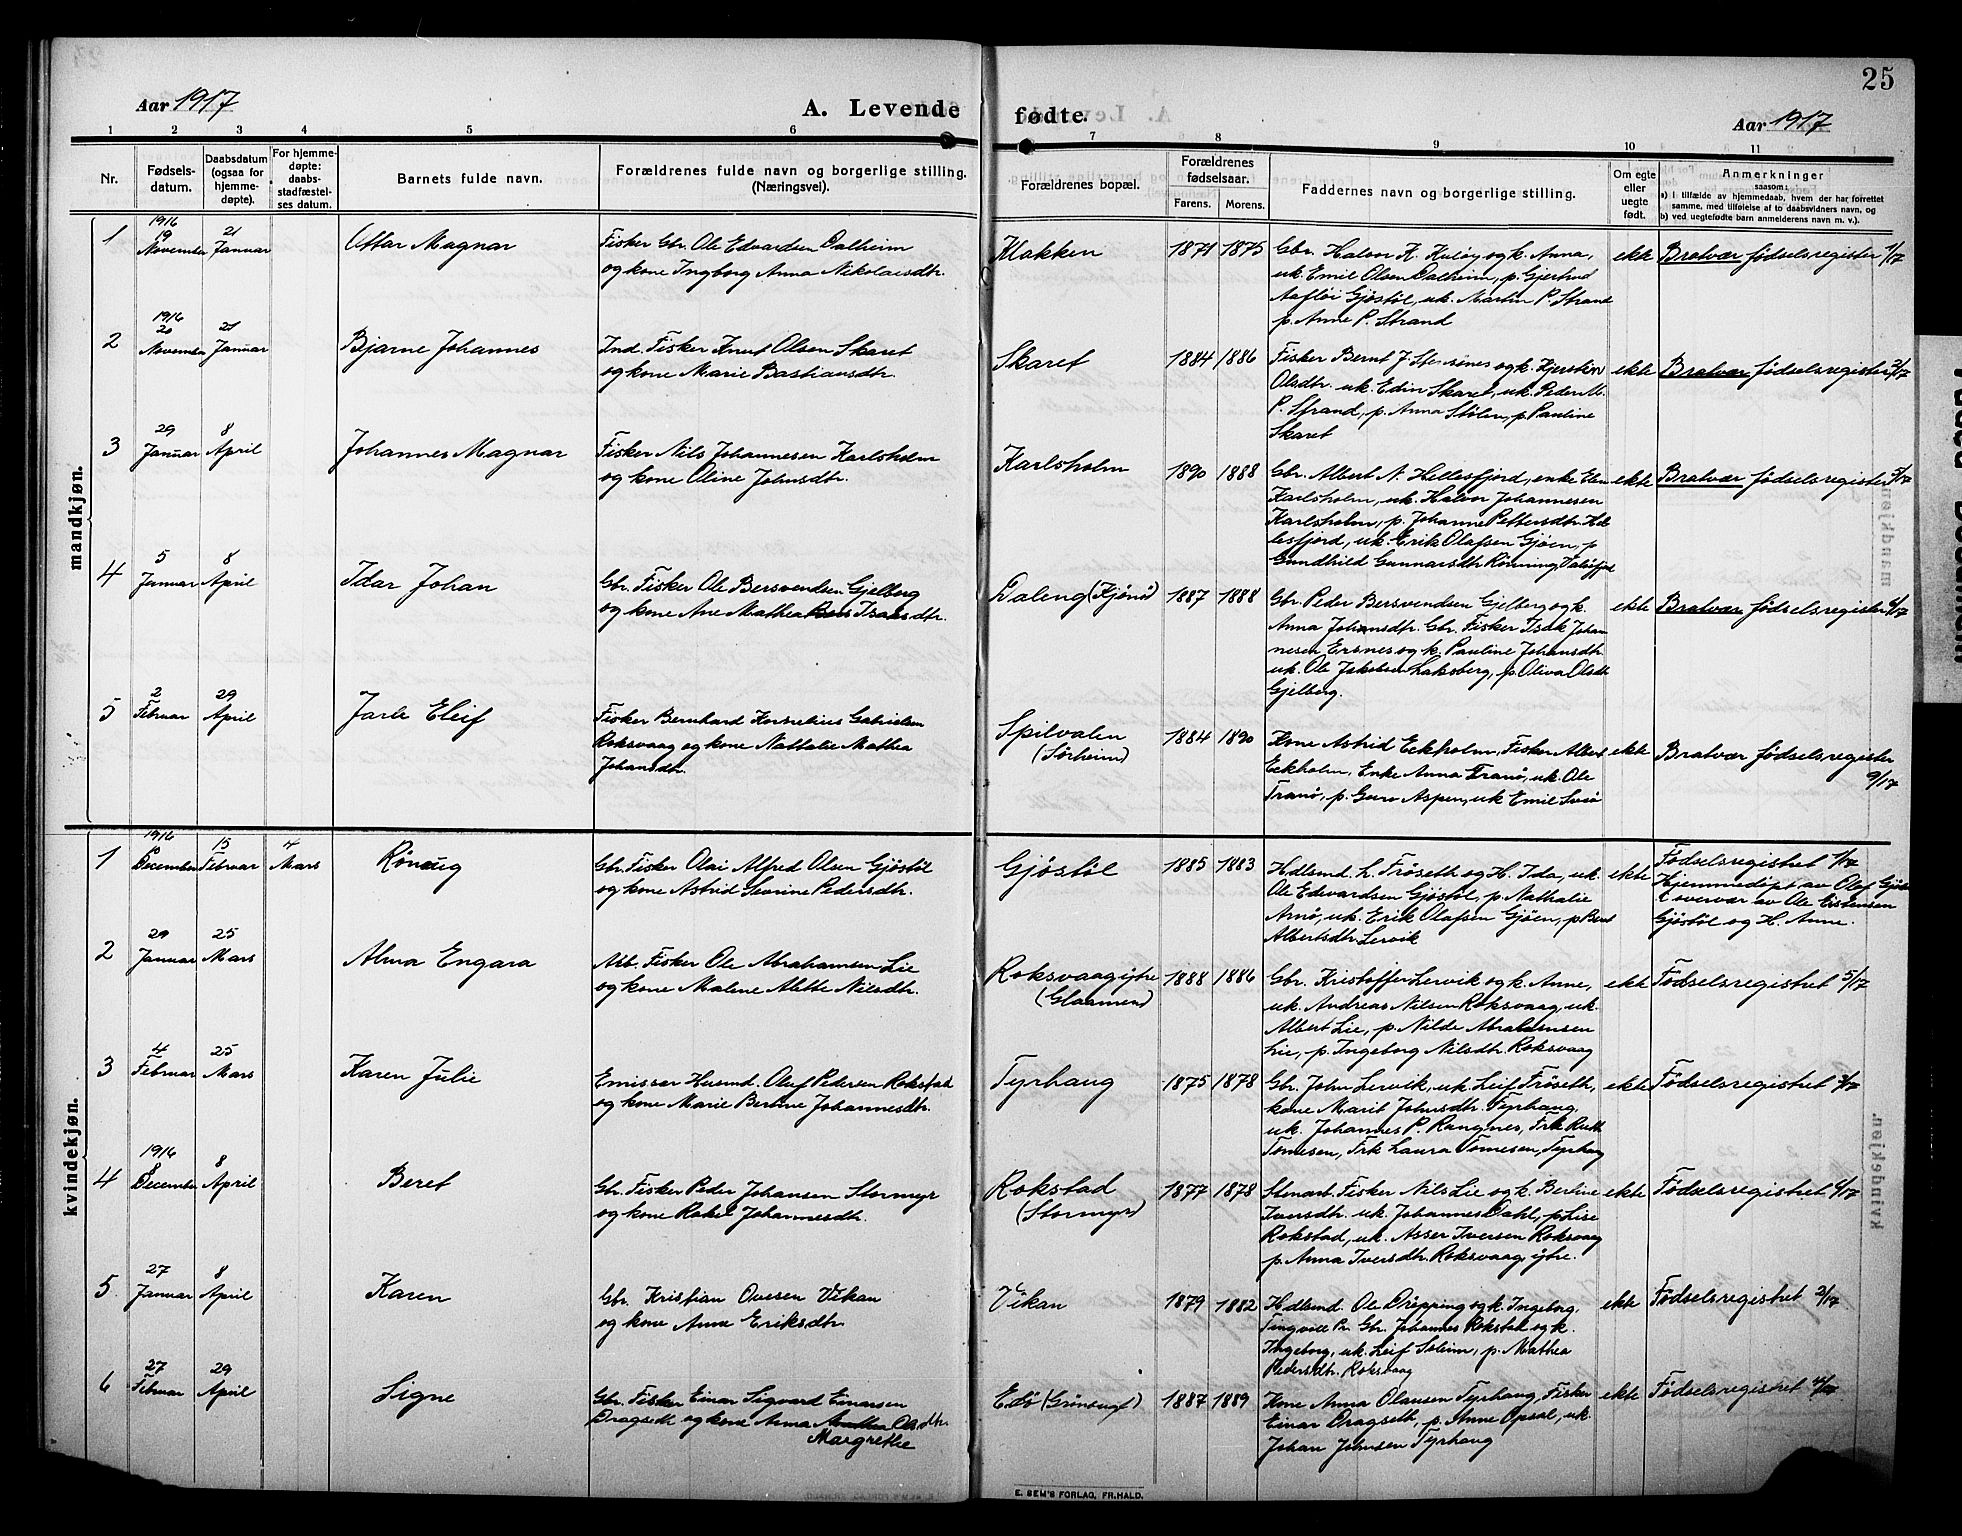 25
Aar 1917
A. Levende
fødte.
Aar 1917
1 2 3 4 5 6 7 8 9 10 11
Nr.
Fødsels-
datum.
Daabsdatum
(ogsaa for
hjemme-
døpte).
For hjemme-
døpte:
daabs-
stadfæstel-
ses datum.
Barnets fulde navn.
Forældrenes fulde navn og borgerlige stilling.
(Næringsvei).
Forældrenes bopæl.
Forældrenes
fødselsaar.
Farens. Morens.
Faddernes navn og borgerlige stilling.
Om egte
eller
uegte
født.
Anmerkninger
saasom:
a) i tilfælde av hjemmedaab, hvem der har forrettet
samme, med tilføielse af to daabsvidners navn, og
b) ved uegtefødte barn anmelderens navn m. v.).
mandkjøn.
1
1916
19
November
21
Januar
Ottar Magnar
Fisker Gbr. Ole Edvardsen Dalheim
og kone Ingborg Anna Nikolaisdtr.
Klakken
1871 1875
Gbr. Halvor K. og k. Anna,
uk. Emil Olsen Dalheim, p. Gjertrud
Gjøstøl, uk. Martin P. Strand
p. Anne P. Strand
ekte
Bratvær fødselsregister 1/17
2
1916
20
November
21
Januar
Bjarne Johannes
Ind. Fisker Knut Olsen Skaret
og kone Marie Bastiansdtr.
Skaret
1884 1886
Fisker Bernt J. og k. Kjersten
Olsdtr. uk. Edin Skaret, uk. Peder M.
P. Strand, p. Anna Stølen, p. Pauline
Skaret
ekte
Bratvær fødselsregister 2/17
3
29
Januar
8
April
Johannes Magnar
Fisker Nils Johannesen Karlsholm
og kone Oline Johnsdtr.
Karlsholm
1890 1888
Gbr. Albert N. Hellesfjord, enke Elen
Karlsholm, uk. Halvor Johannesen
Karlsholm, p. Johanne Pettersdtr. Hel
lesfjord, uk. Erik Olafsen Gjøen, p
Gundhild Gunnarsdtr. Rønning, Valsøfjord
ekte
Bratvær fødselsregister 5/17
4
5
Januar
8
April
Idar Johan
Gbr. Fisker Ole Bersvendsen Gjelberg
og kone Ane Mathea Isaksdtr.
Daleng (Kjønø)
1887 1888
Gbr. Peder Bersvendsen Gjelberg og k.
Anna Johansdtr. Gbr. Fisker Isak Johan
nesen Ersnes og k. Pauline Johansdtr.
uk. Ole Jakobsen Laksberg, p. Oliva Olsdtr
Gjelberg.
ekte
Bratvær fødselsregister 6/17
5
2
Februar
29
April
Jarle Eleif
Fisker Bernhard Kornelius Gabrielsen
Roksvaag og kone Nathalie Mathea
Johansdtr.
Spilvalen
(Sørheim)
1884 1890
Kone Astrid Eckholm, Fisker Albert
Eckholm, Enke Anna Tranø, uk. Ole
Tranø, p. Guro Aspen, uk Emil
ekte
Bratvær fødselsregister
9/17
kvindekjøn.
1
1916
December
15
Februar
4
Mars
Rønaug
Gbr. Fisker Olai Alfred Olsen Gjøstøl
og kone Astrid Severine Pedersdtr.
Gjøstøl
1885 1883
Hdlsmd L. Frøseth og H. Ida, uk.
Ole Edevardsen Gjøstøl, p. Nathalie
Arnø, uk. Erik Olafsen Gjøen, p
Albertsdtr. Lervik
ekte
Fødselsregistret 1/17
Hjemmedøpt av Olaf Gjøen
i overvær av Ole Eistensen
Gjøstøl og H. Anne.
2
29
Januar
25
Mars
Alma Engara
Arb. Fisker Ole Abrahamsen Lie
og kone Malene Alette Nilsdtr.
Roksvaag ytre
(Glaamen)
1888 1886
Gbr. Kristoffer Lervik og k. Anne,
uk. Andreas Nilsen Roksvaag, uk.
Albert Lie, p. Nilde Abrahamsen
Lie, p. Ingeborg Nilsdtr. Roksvaag
ekte
Fødselsregistret 5/17
3
4
Februar
25
Mars
Karen Julie
Emissær Husmd. Oluf Pedersen Rokstad
og kone Marie Berline Johannesdtr.
Tyrhaug
1875 1878
Gbr. John Lervik, uk. Leif Frøseth,
kone Marit Johnsdtr. Tyrhaug,
uk. Johannes P. Rangnes, Frk Ruth
Tømesen, Frk Laura Tømesen, Tyrhaug
ekte
Fødselsregistret 3/17
4
1916
8
December
8
April
Beret
Gbr. Fisker Peder Johansen Stormyr
og kone Rakel Johannesdtr.
Rokstad
(Stormyr)
1877 1878
Fisker Nils Lie og k. Berline
Iversdtr. uk. Johannes Dahl, p. Lise
Rokstad, uk. Asser Iversen Roksvaag
p. Anna Iversdtr. Roksvaag, ytre.
ekte
Fødselsregistret 6/17
5
27
Januar
8
April
Karen
Gbr. Kristian Ovesen Vikan
og kone Anne Eriksdtr.
Vikan
1879 1882
Hdlsmd. Ole Drøpping og k. Ingeborg,
Tingvoll Pr. Gbr. Johannes Rokstad og k.
Ingeborg, uk. Leif Soleim, p. Mathea
Pedersdtr. Roksvaag
ekte
Fødselsregistret 2/17
6
27
Februar
29
April
Signe
Gbr. Fisker Einar Sigvard Einarsen
Dragseth og kone Anna Mathea Olsdtr.
Margrethe
Edø (Grönaug)
1887 1889
Kone Anna Olausen Tyrhaug, Fisker
Einar Dragseth, p. Anne Opsal, uk.
Johan Johnsen Tyrhaug
ekte
Fødselsregistret 4/17
E. SEM'S FORLAG, FR.HALD.